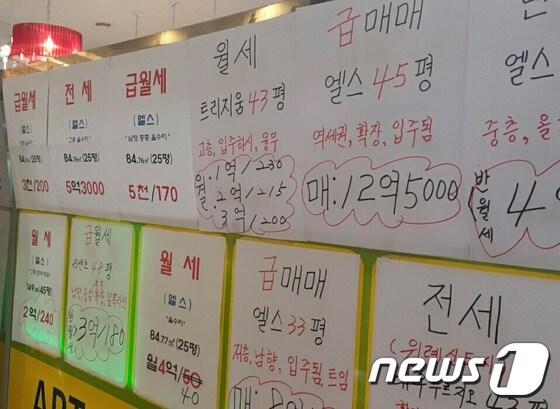 급월세
(엘스)
84.76㎡(25평)
3천/200
전세
(엘스)
84.76㎡(25평)
5억3000
급월세
(엘스)
84.76㎡(25평)
5천/170
월세
트리지움 43평
고층, 입주하시, 융무
월:1억/230
2억/215
3억/200
급매매
엘스 45평
역세권, 확장, 입주됨
매:12억5000
엘스
중층, 올
반월세 4
월세
(엘스)
149㎡(45평)
2억/240
급월세
리센츠 48평
반월세 3억/180
월세
(엘스)
*올수리*
84.77㎡(25평)
월4억/50
40
급매매
엘스 33평
저층, 남향, 입주됨, 트임
전세
APT
news1